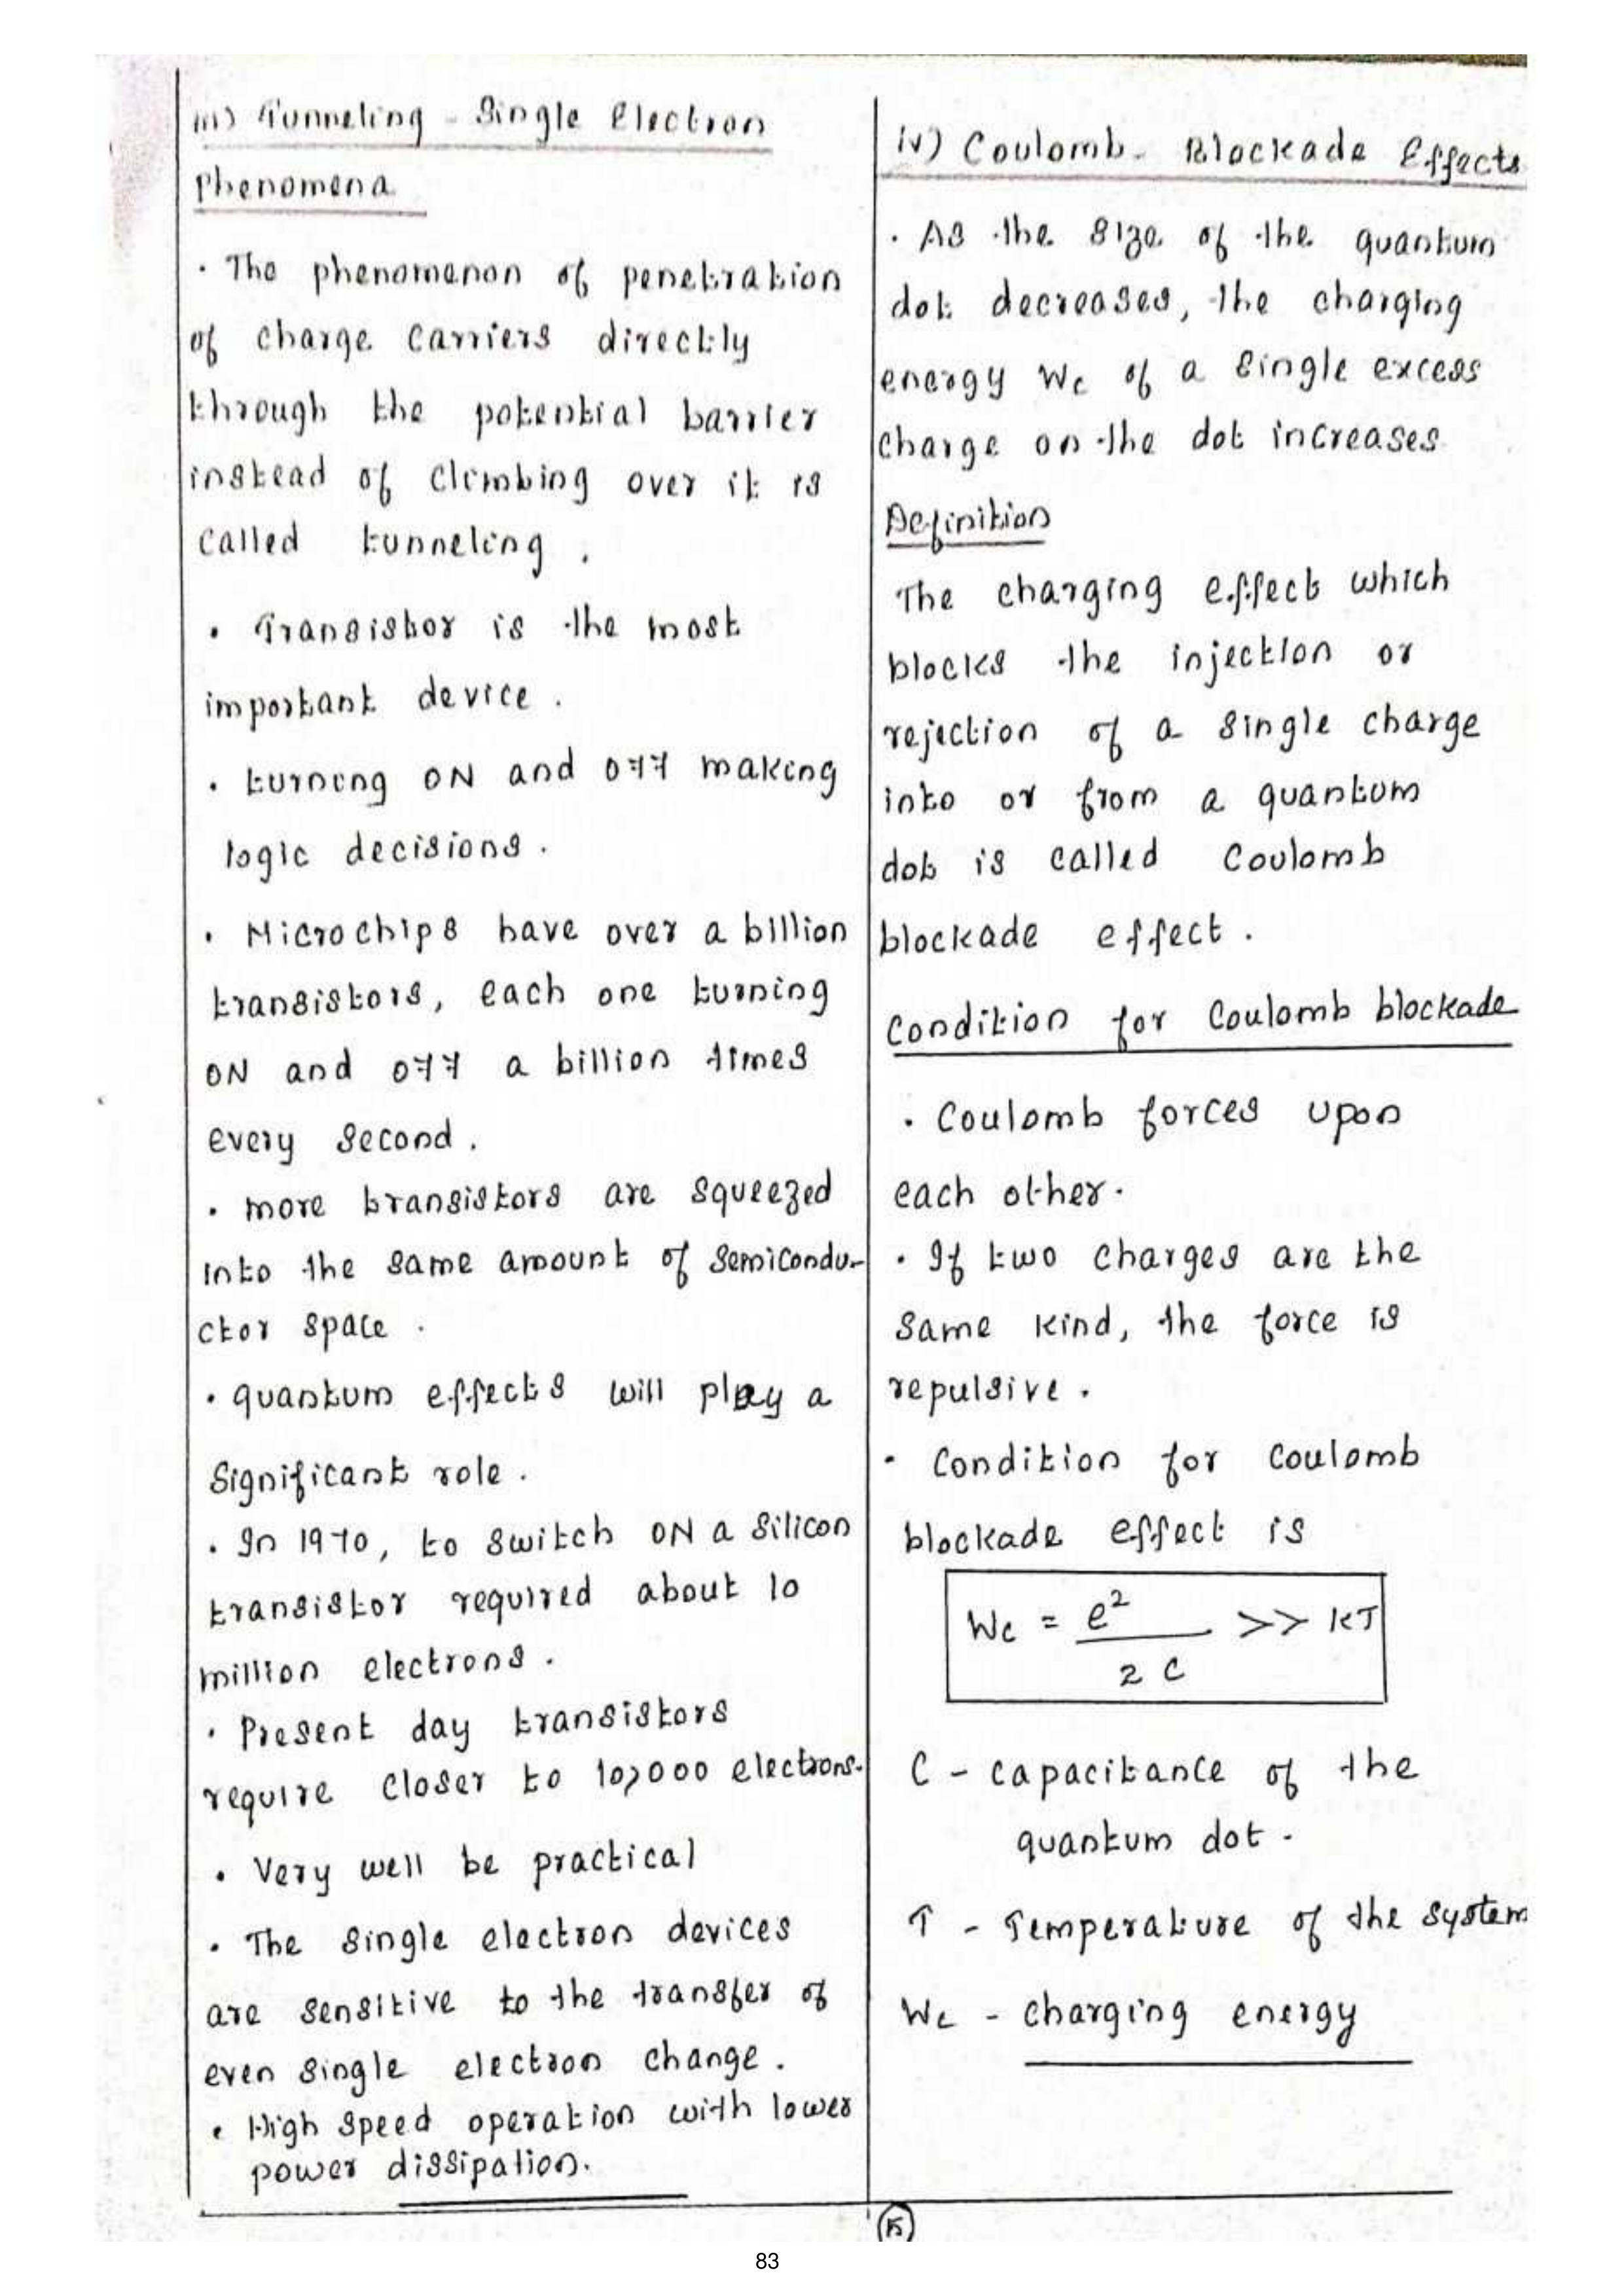 iii) Tunneling - Single Electron
Phenomena
· The phenomenon of penetration
of charge carriers directly
through the potential barrier
instead of climbing over it is
called tunneling .
· Transistor is the most
important device .
· turning ON and OFF making
logic decisions .
· Microchips have over a billion
transistors, each one turning
ON and OFF a billion times
every second .
· more transistors are squeezed
into the same amount of semicondu-
ctor space .
· quantum effects will play a
significant role .
· In 1970, to switch ON a silicon
transistor required about 10
million electrons .
· Present day transistors
require closer to 10,000 electrons.
· Very well be practical
· The single electron devices
are sensitive to the transfer of
even single electron change .
· High speed operation with lower
power dissipation.
iv) Coulomb - Blockade Effects
· As the size of the quantum
dot decreases, the charging
energy Wc of a single excess
charge on the dot increases
Definition
The charging effect which
blocks the injection or
rejection of a single charge
into or from a quantum
dot is called Coulomb
blockade effect .
Condition for Coulomb blockade
· Coulomb forces upon
each other.
· If two charges are the
same kind, the force is
repulsive .
· Condition for Coulomb
blockade effect is
Wc = e²/2C >> kT
C - capacitance of the
quantum dot .
T - Temperature of the system
Wc - charging energy
15
83